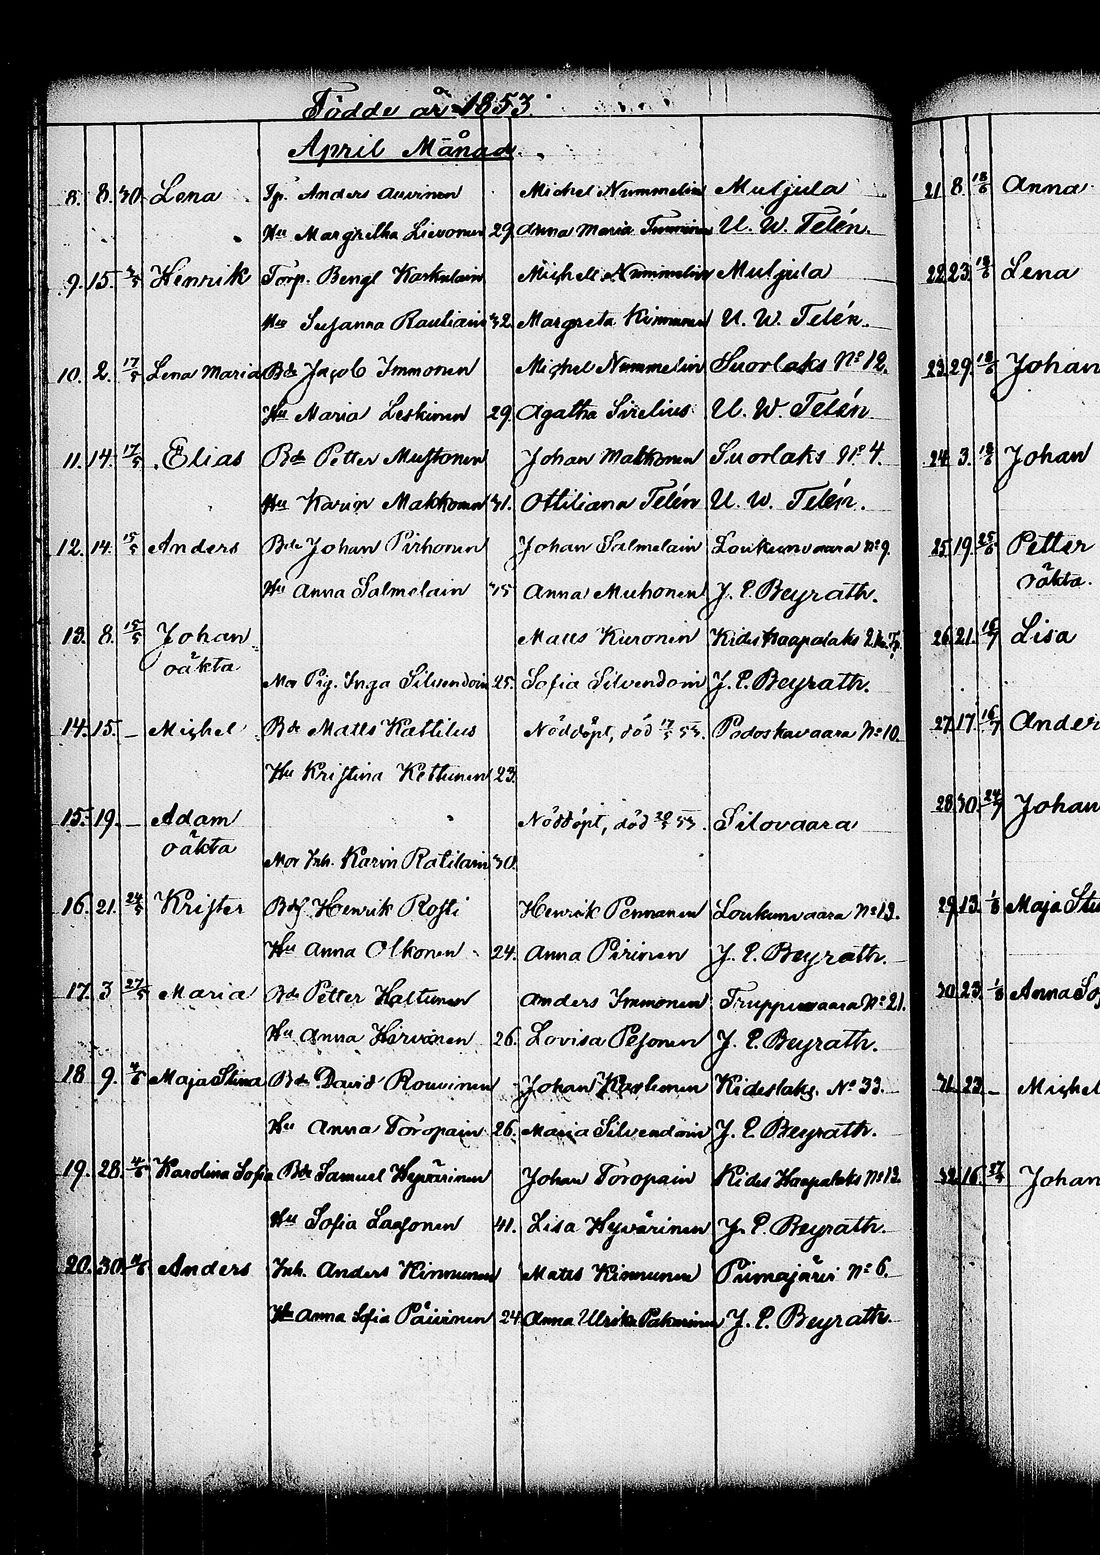 Födde år 1853.
April Månad.
8. 8. 30 Lena Tp. Anders Auvinen Michel Nummelin Muljula
Hu Margretha Lievonen 29. Anna Maria U. W. Telén.
9. 15. Henrik Torp. Bengt Karkulain Michell Nummelin Muljula
Hu Susanna Rautiain 32. Margreta Kinnunen U. W. Telén.
10. 2. 17/5 Lena Maria Bde Jacob Immonen Michel Nummelin Suorlaks No 12.
Hu Maria Leskinen 29. Agatha Sirelius U. W. Telén
11. 14. 17/5 Elias Bde Petter Mustonen Johan Makkonen Suorlaks No 4.
Hu Karin Makkonen 31. Ottiliana Telén U. W. Telén.
12. 14. 15/5 Anders Bde Johan Pirhonen Johan Salmelain Loukunvaara No 9.
Hu Anna Salmelain 35 Anna Muhonen J. E. Beyrath.
13. 8. 15/5 Johan Matts Kuronen Kides Haapalaks
oäkta
Mor Pig. Inga Silvendoin 25. Sofia Silvendoin J. E. Beyrath.
14. 15. — Michel Bde Matts Kattilus Nöddöpt, död 17/5 53. Podoskavaara No 10.
Hu Kristina Kettunen 23.
15. 19. — Adam Nöddöpt, död 53. Silovaara
oäkta
Mor Inh. Karin Ratilain 30.
16. 21. 24/5 Krister Bds Henrik Rosti Henrik Pennanen Loukunvaara No 13.
Hu Anna Olkonen 24. Anna Pirinen J. E. Beyrath.
17. 3 27/5 Maria Bde Petter Haltunen Anders Immonen Truppuvaara No 21.
Hu Anna Hirvonen 26. Lovisa Pesonen J. E. Beyrath.
18 9. Maja Stina Bde David Rouvinen Johan Karhunen Kideslaks. No 33.
Hu Anna Toropain 26. Maria Silvendoin J. E. Beyrath.
19. 28. Karolina Sofia Bde Samuel Hyvärinen Johan Toropain Kides Haapalaks No 12.
Hu Sofia Laasonen 41. Lisa Hyvärinen J. E. Beyrath.
20. 30. Anders Inh. Anders Kinnunen Matts Kinnunen Piimajärvi No 6.
Hu Anna Sofia Päivinen 24 Anna Ulrika Pakarinen J. E. Beyrath.
21 8. Anna
22 23. Lena
23. 29. Johan
24 3. Johan
25. 19. Petter
oäkta.
26. 21. Lisa
27. 17. Ander
28 30. Johan
29. 13. Maja Sti
30. 23. Anna So
31. 23. — Michel
32. 16. Johan